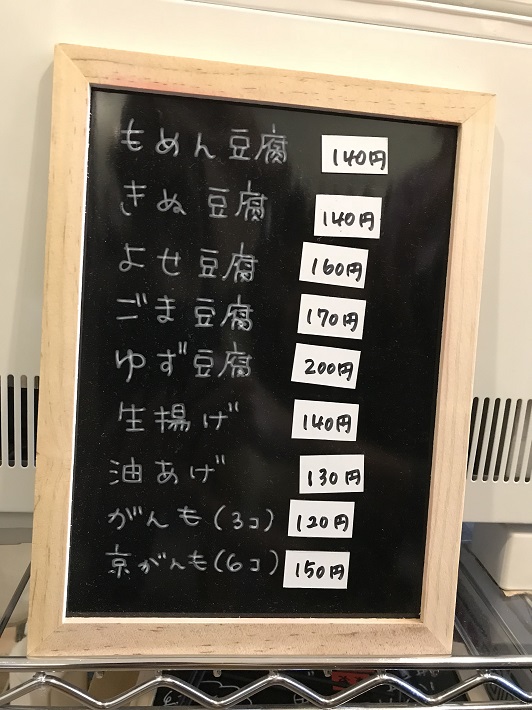 もめん豆腐 140円
きぬ豆腐 140円
よせ豆腐 160円
ごま豆腐 170円
ゆず豆腐 200円
生揚げ 140円
油あげ 130円
がんも(3コ) 120円
京がんも(6コ) 150円